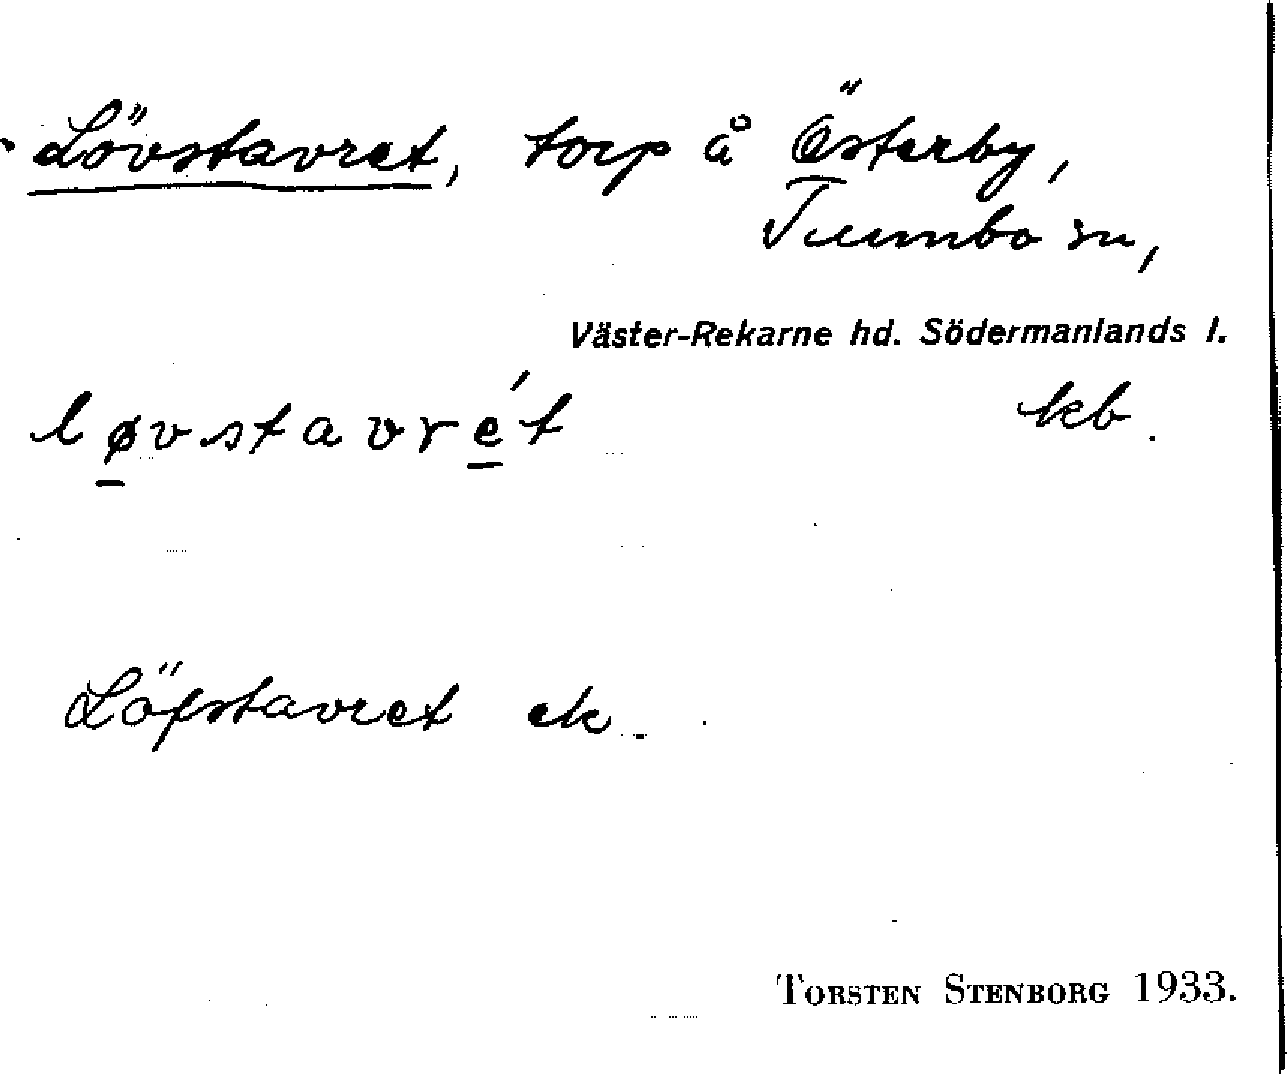 Lövstavret, torp å Österby,
Tumbo sn,
Väster-Rekarne hd. Södermanlands l.
løvstavrét kb.
Löfstavret ek.
TORSTEN STENBORG 1933.